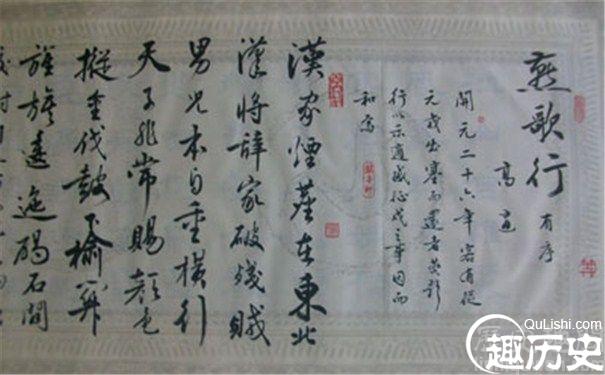 燕歌行 有序
高適
開元二十六年客有從
元戎出塞而還者
行以示適感征戍之事因而
和焉
漢家煙塵在東北
漢將辭家破殘賊
男兒本自重橫行
天子非常賜顏色
摐金伐鼓下榆關
旌旆逶迤碣石間
QuLishi.com
趣历史